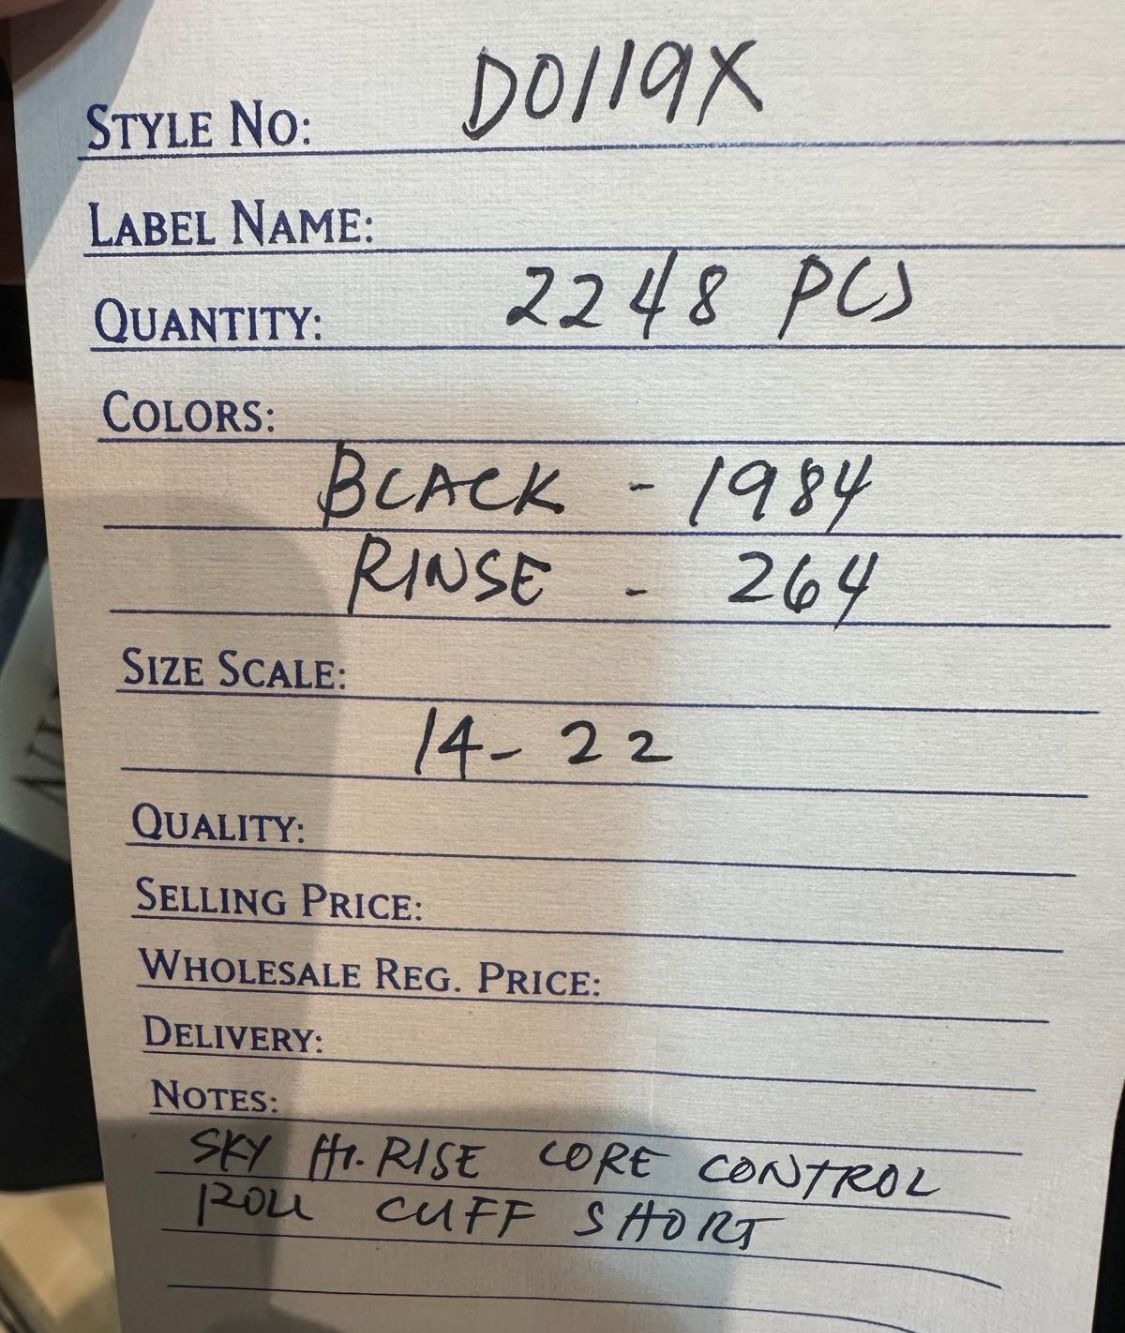 STYLE NO: D0119X
LABEL NAME:
QUANTITY: 2248 PCS
COLORS:
BLACK - 1984
RINSE - 264
SIZE SCALE:
14-22
QUALITY:
SELLING PRICE:
WHOLESALE REG. PRICE:
DELIVERY:
NOTES:
SKY HI. RISE CORE CONTROL
ROLL CUFF SHORT